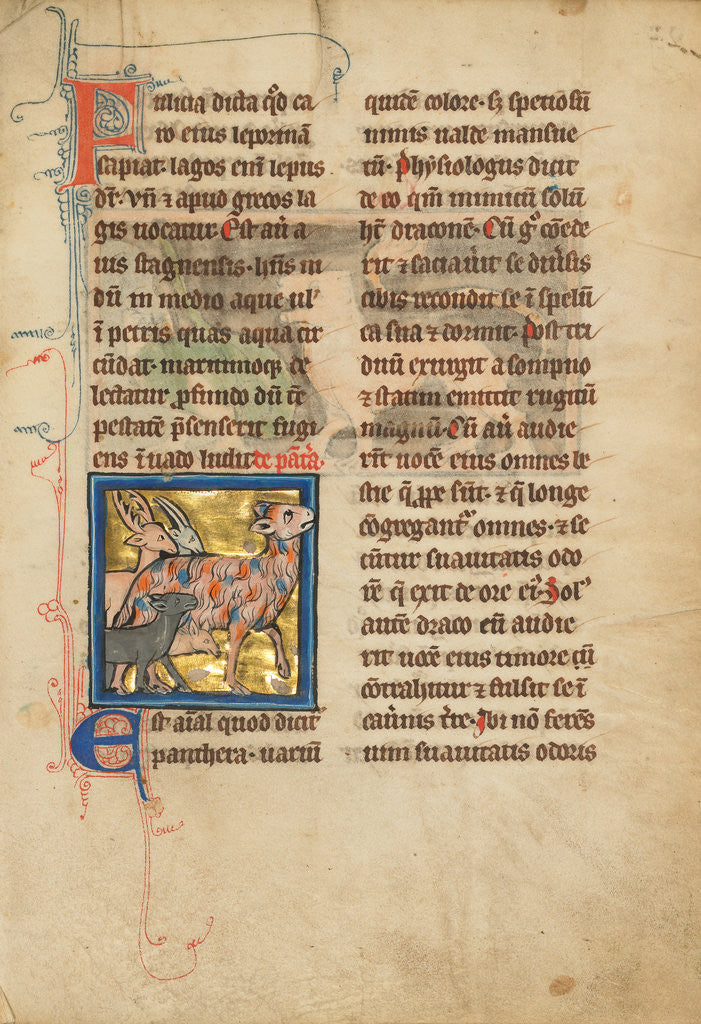 Fulicia dicta q̄d ca
ro eius leporinā
sapiat· lagos eni͂ lepus
dr̄· vn̄ ⁊ apud grecos la
gis uocatur Est aū a
uis stagnensis· hn̄s ni
dū in medio aque ul'
ī petris quas aqua cir
cūdat· maritimoq; de
lectatur ꝓfundo dū tē
pestatē p̄senserit fugi
ens ī uado ludit de pāt͛a·
Est aīal quod dicit͛
panthera· uariū
quidē colore· sꝫ speciosū
nimis ualde mansue
tū· Phẏsiologus dicit
de eo qm̄ inimicū solū
ht̄ draconē· Cū gͦ cōede
rit ⁊ saciau͛it se diu͛sis
cibis recondit se ī spelū
ca sua ⁊ dormit· Post tri
duū exurgit a sompno
⁊ statim emittit rugitū
magnū· Cū aū audie
rīt uocē eius omnes be
stie q̄ ꝓpe sūt· ⁊ q̄ longe
cōgregant͛ omnes· ⁊ se
cūtur suauitatis odo
rē q̄ exit de ore ei᷒· Sol'
autē draco cū audie
rit uocē eius timore
cōtrahitur ⁊ fulsit se ī
cau͛nis t͛re· Ibi nō ferēs
uim suauitatis odoris